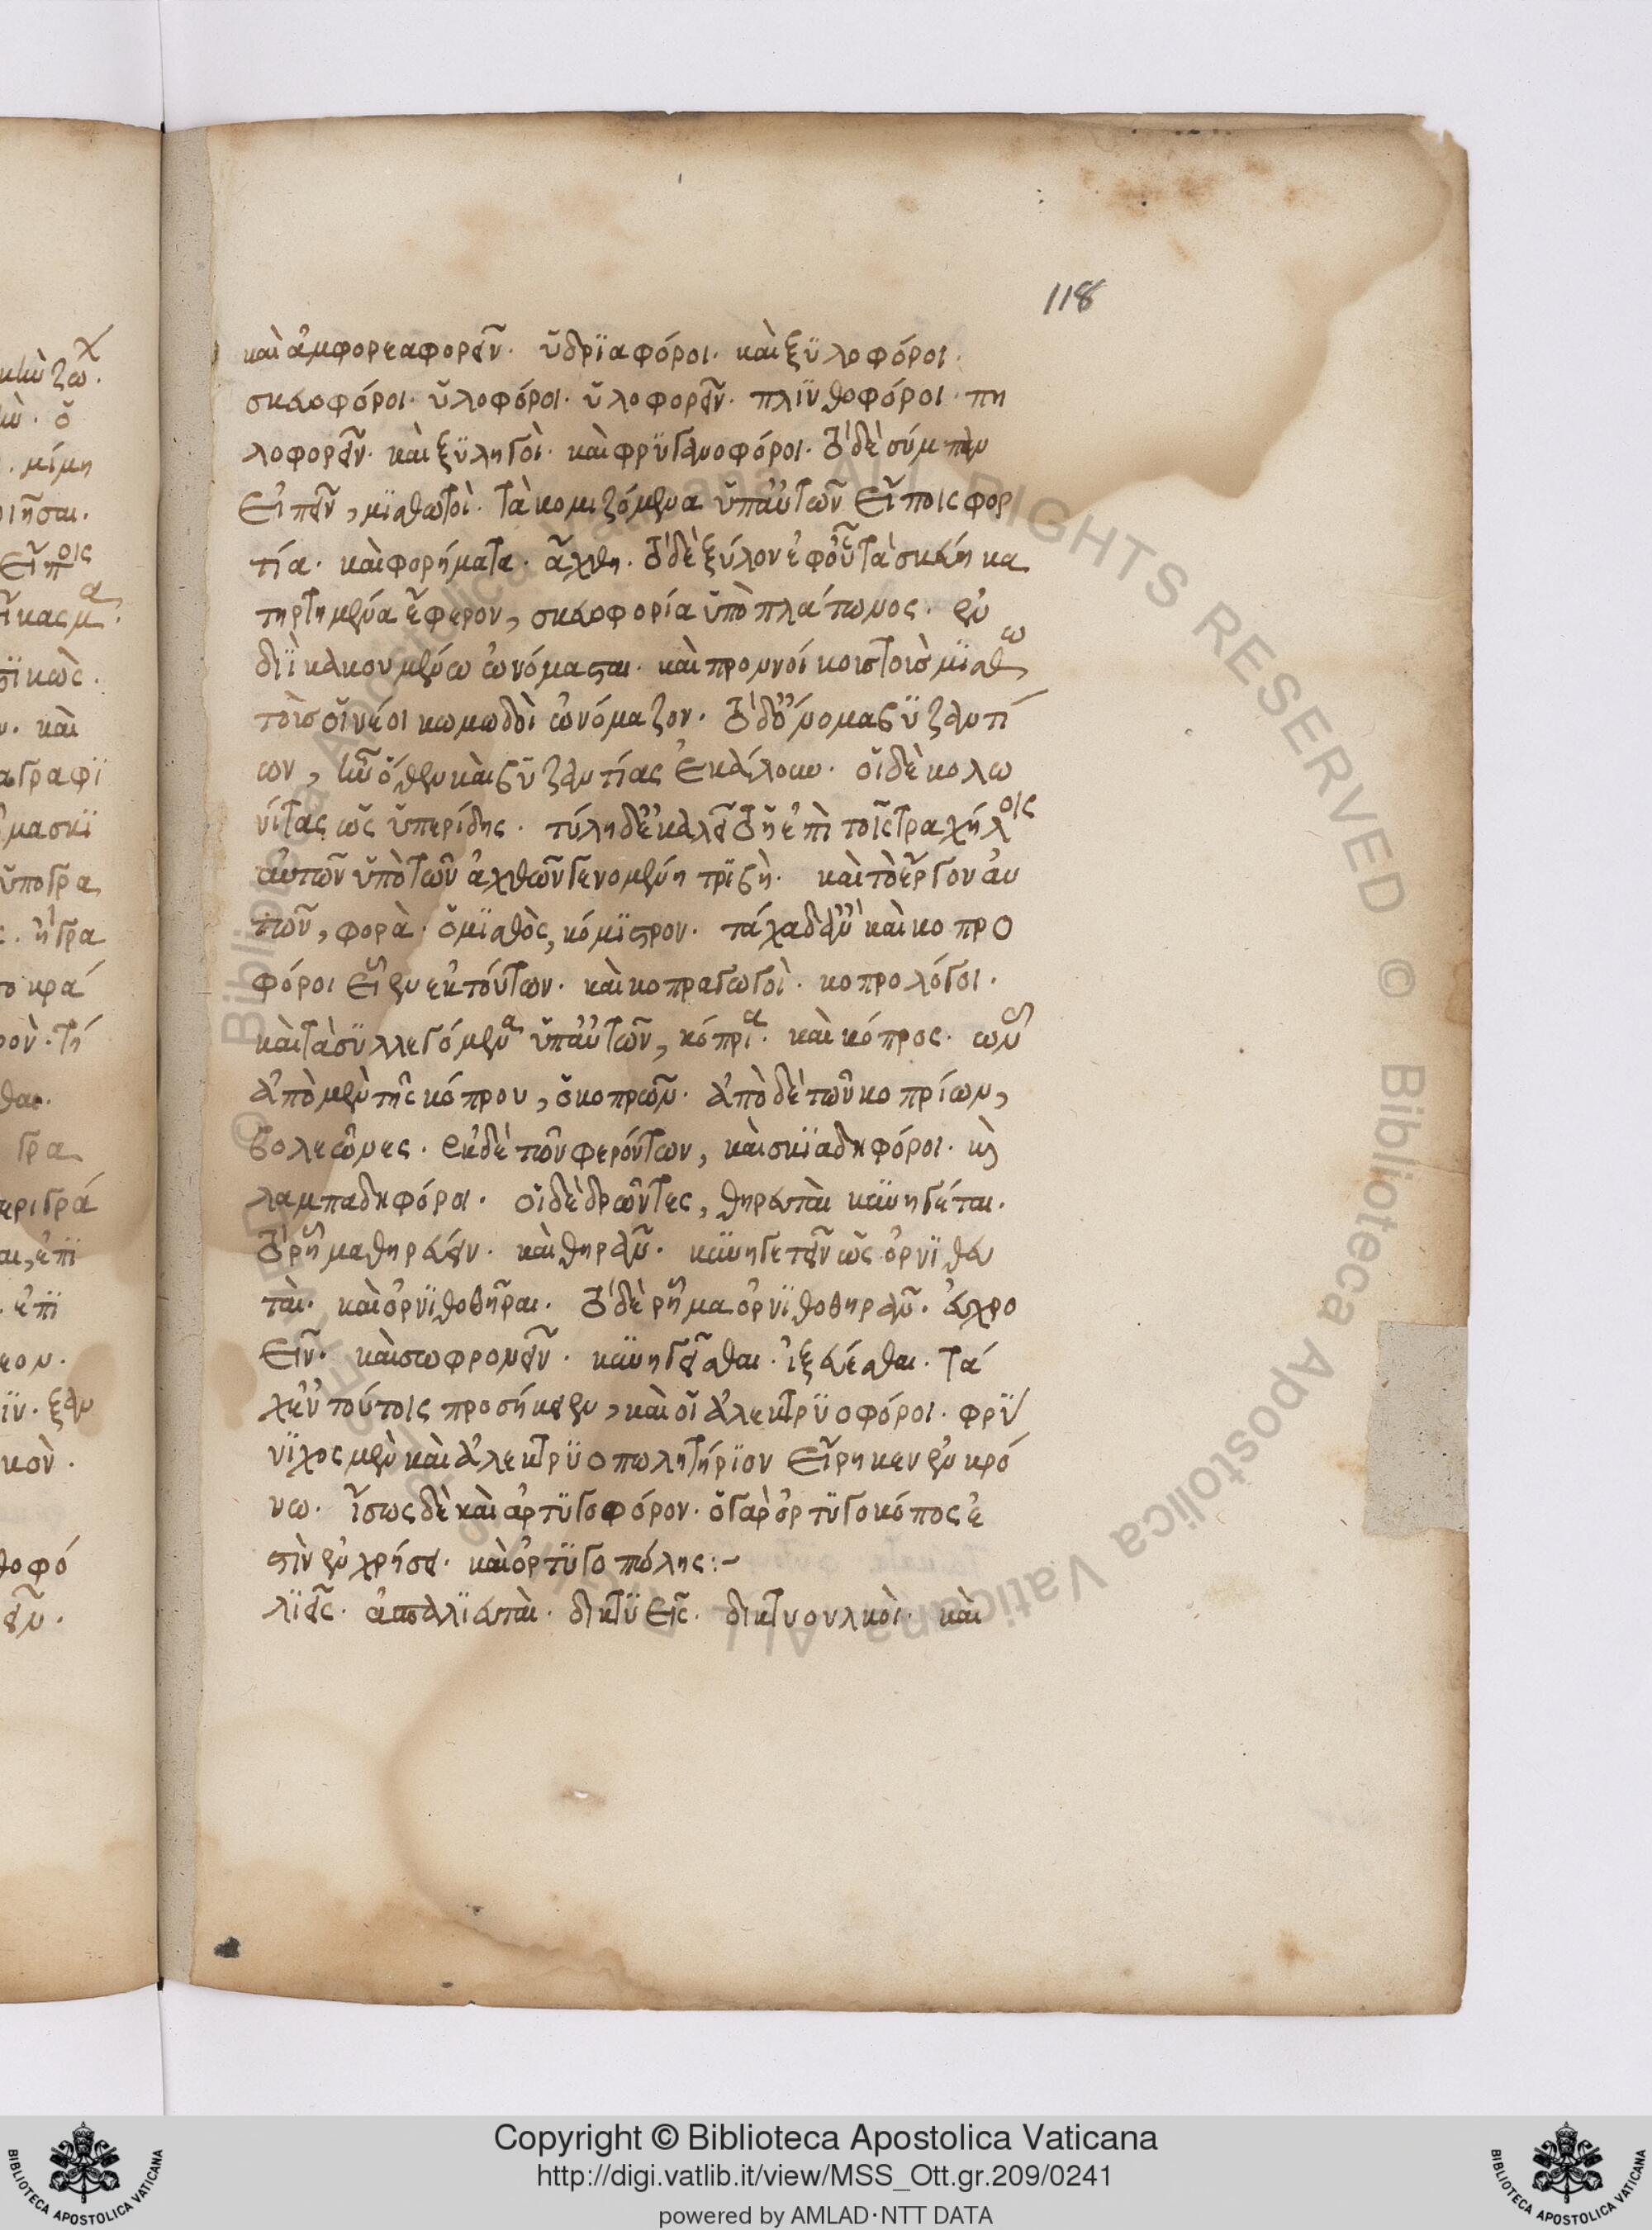 118
καὶ ἀμφορεαφορεῖν. ὑδρϊαφόροι. καὶ ξϋλοφόροι.
σκευοφόροι. ὑλοφόροι. ὑλοφορεῖν. πλϊνθοφόροι. πη
λοφορεῖν. καὶ ξϋληγοὶ. καὶ φρϋγανοφόροι. τὸ δὲ σύμπαν
εἰπεῖν, μϊσθωτοὶ. τὰ κομιζόμενα ὑπ' αὐτῶν εἴποις φορ
τία. καὶ φορήματα. ἄχθη. τὸ δὲ ξύλον ἐφ' οὗ τὰ σκεύη κα
τηρτημένα ἔφερον, σκευοφορία ὑπὸ πλάτωνος. ἐν
διϊ κακουμένω ὠνόμασται. καὶ προυνίκοις τοὺς μϊσθω
τοὺς οἱ νέοι κωμωδοὶ ὠνόμαζον. τὸ δ' ὄνομα βϋζαντί
ων, ὅθεν καὶ βϋζαντίας ἐκάλουν. οἱ δὲ κολω
νίτας ὡς ὑπερίδης. τύλη δὲ καλεῖται ἡ ἐπὶ τοῖς τραχήλοις
αὐτῶν ὑπὸ τῶν ἀχθῶν γενομένη τρϊβὴ. καὶ τὸ ἔργον αὐ
τῶν, φορὰ. ὁ μϊσθὸς, κόμϊστρον. τάχα δ' ἂν καὶ κοπρο
φόροι εἶεν ἐκ τούτων. καὶ κοπραγωγοὶ. κοπρολόγοι.
καὶ τὰ συλλεγόμενα ὑπ' αὐτῶν, κόπρια. καὶ κόπρος. ὧν
ἀπὸ μὲν τῆς κόπρου, ὁ κοπρὼν. ἀπὸ δὲ τῶν κοπρίων,
βολεῶνες. ἐκ δὲ τῶν φερόντων, καὶ σκϊαδηφόροι. καὶ
λαμπαδηφόροι. οἱ δὲ δρῶντες, θηρευταὶ κϋνηγέται.
τὸ ῥῆμα θηρεύειν. καὶ θηρᾶν. κϋνηγετεῖν ὡς ὀρνϊθευ
ταὶ. καὶ ὀρνϊθοθῆραι. τὸ δὲ ῥῆμα ὀρνϊθοθηρᾶν. εὐχρο
εῖν. καὶ σωφρονεῖν. κϋνηγεῖσθαι. ἰξεύεσθαι. τά
χ' ἐν τούτοις προσήκειεν, καὶ οἱ ἀλεκτρϋοφόροι. φρϋ
νϊχος μὲν καὶ ἀλεκτρϋοπωλητήρϊον εἴρηκεν ἐν κρό
νω. ἴσως δὲ καὶ ἀρτϋγοφόρον. ὁ γὰρ ὀρτϋγοκόπος ἐ
στὶν ἐν χρήσει. καὶ ὀρτϋγοπώλης :-
λϊεῖς. ἀσπαλϊευταὶ. δικτϋεῖς. δικτυουλκοὶ. καὶ
Copyright © Biblioteca Apostolica Vaticana
http://digi.vatlib.it/view/MSS_Ott.gr.209/0241
powered by AMLAD·NTT DATA